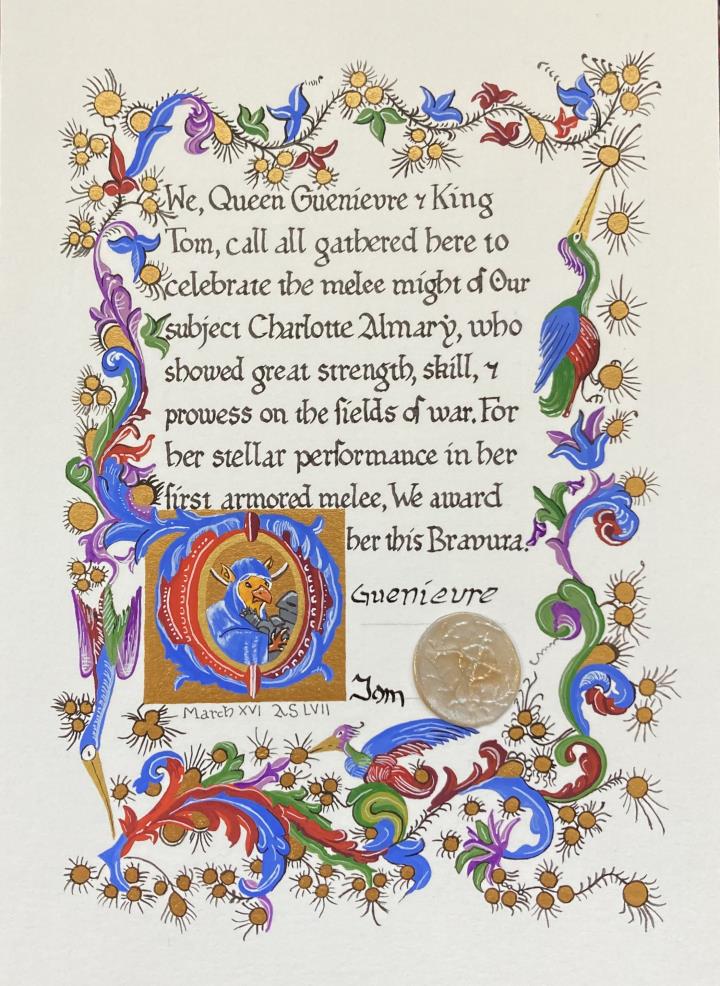 We, Queen Guenievre ⁊ King
Tom, call all gathered here to
celebrate the melee might of Our
subject Charlotte Almarÿ, who
showed great strength, skill, ⁊
prowess on the fields of war. For
her stellar performance in her
first armored melee, We award
her this Bravura.
Guenievre
Tom
March XVI AS LVII